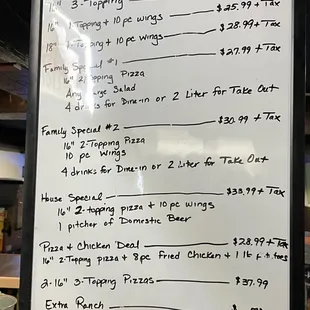 16" 3-Topping
16" 1-Topping + 10 pc wings $25.99 + Tax
18" 1-Topping + 10 pc wings $28.99 + Tax
Family Special #1 $27.99 + Tax
16" 2-Topping Pizza
Any Large Salad
4 drinks for Dine-in or 2 Liter for Take Out
Family Special #2 $30.99 + Tax
16" 2-Topping Pizza
10 pc wings
4 drinks for Dine-in or 2 Liter for Take Out
House Special $33.99 + Tax
16" 2-topping pizza + 10 pc wings
1 pitcher of Domestic Beer
Pizza & Chicken Deal $28.99 + Tax
16" 2-Topping pizza + 8pc Fried Chicken + 1 lb
2-16" 3-Topping Pizzas $37.99
Extra Ranch